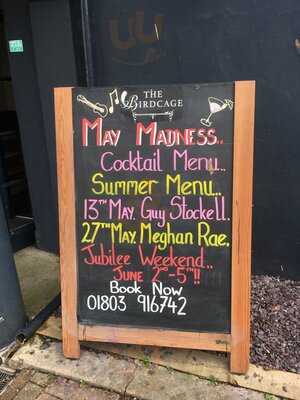 THE
BIRDCAGE
MAY MADNESS..
Cocktail Menu..
Summer Menu..
13TH MAY. Guy Stockell.
27TH MAY. Meghan Rae.
Jubilee Weekend..
JUNE 2ND-5TH!!
Book Now
01803 916742